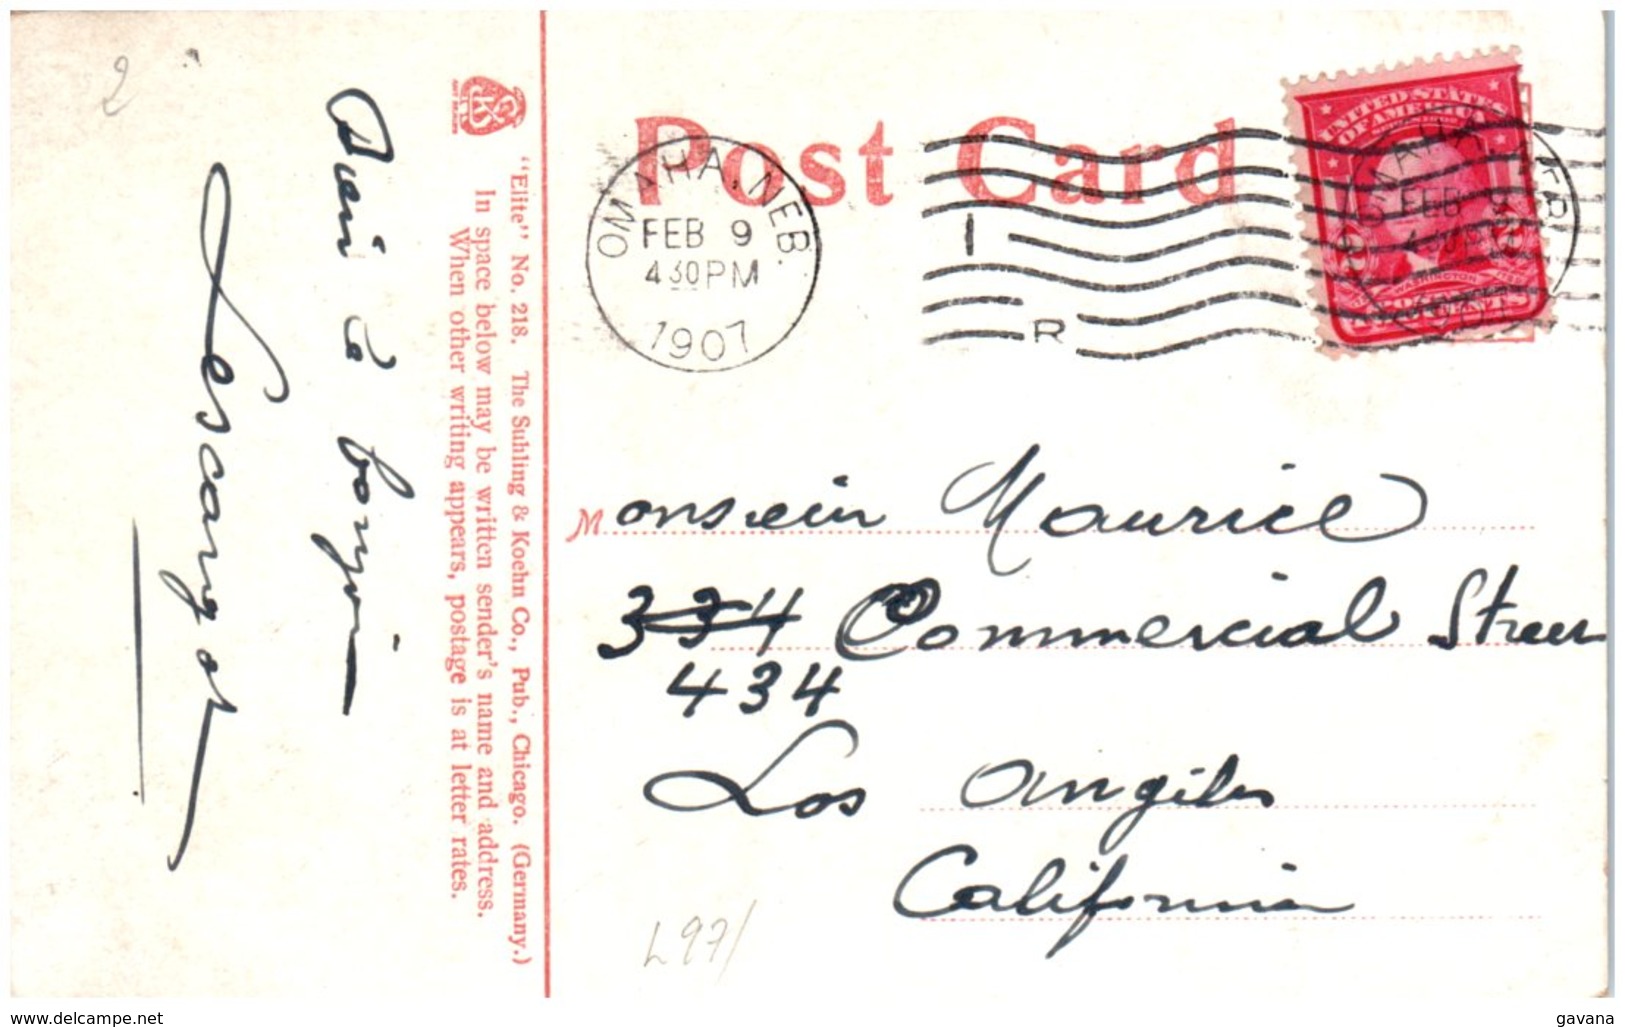 Post Card
OMAHA, NEB.
FEB 9
4 30 PM
1907
I
R
UNITED STATES
OF AMERICA
WASHINGTON
Monsieur Maurice
334 Commercial Street
434
Los Angiles
California
L97/
2
"Elite" No. 218. The Suhling & Koehn Co., Pub., Chicago. (Germany.)
In space below may be written sender's name and address.
When other writing appears, postage is at letter rates.
à
Lescangot
www.delcampe.net
gavana